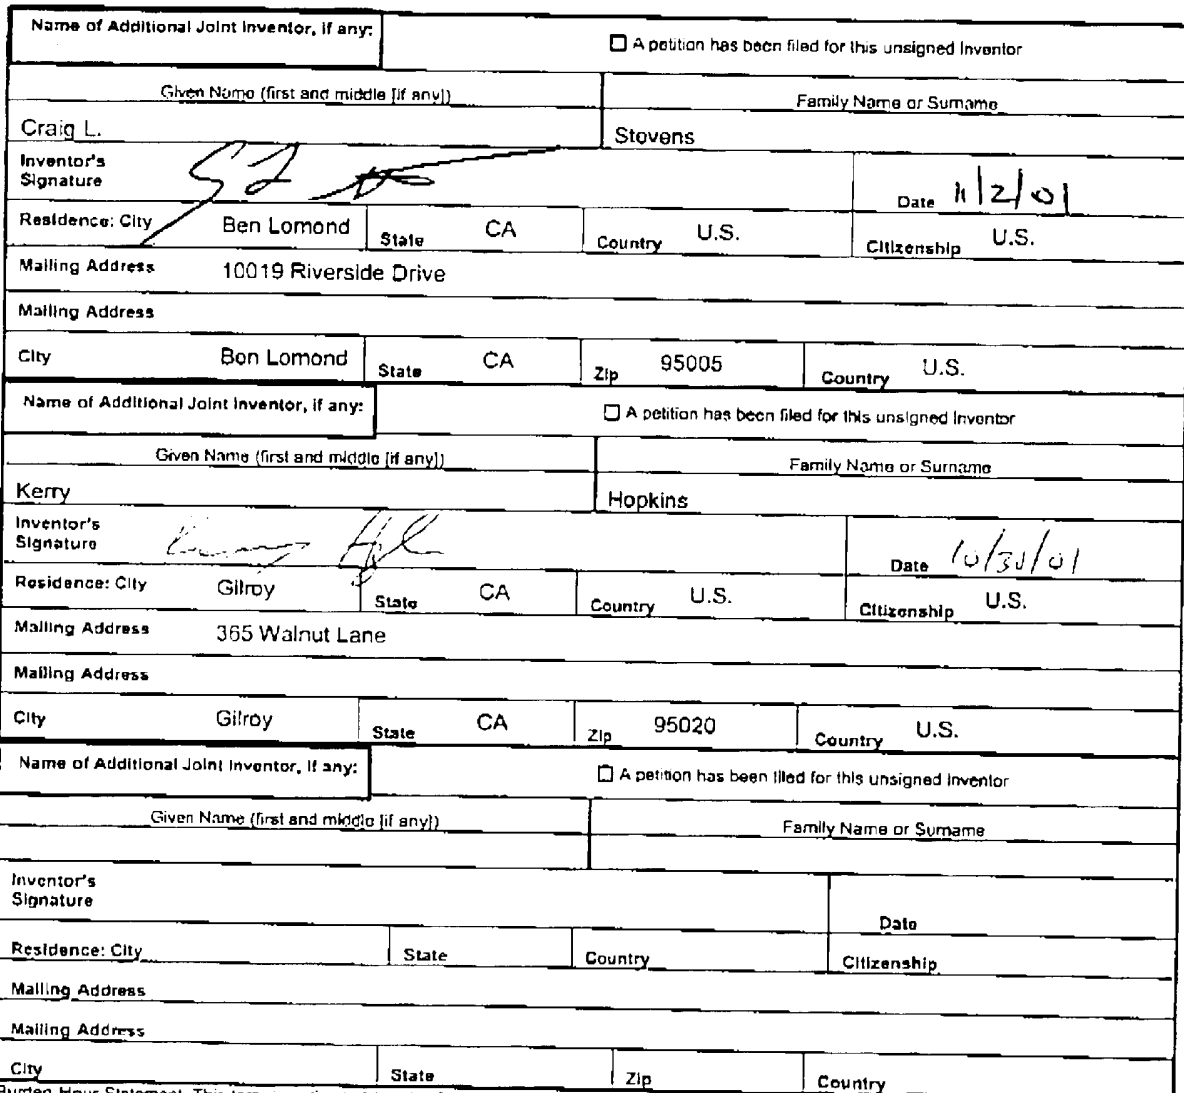 Name of Additional Joint Inventor, if any:
☐ A petition has been filed for this unsigned Inventor
Given Name (first and middle [if any]) Family Name or Surname
Craig L. Stevens
Inventor's Signature Date 11/2/01
Residence: City Ben Lomond State CA Country U.S. Citizenship U.S.
Mailing Address 10019 Riverside Drive
Mailing Address
City Ben Lomond State CA Zip 95005 Country U.S.
Name of Additional Joint Inventor, if any:
☐ A petition has been filed for this unsigned Inventor
Given Name (first and middle [if any]) Family Name or Surname
Kerry Hopkins
Inventor's Signature Date 10/30/01
Residence: City Gilroy State CA Country U.S. Citizenship U.S.
Mailing Address 365 Walnut Lane
Mailing Address
City Gilroy State CA Zip 95020 Country U.S.
Name of Additional Joint Inventor, if any:
☐ A petition has been filed for this unsigned Inventor
Given Name (first and middle [if any]) Family Name or Surname
Inventor's Signature Date
Residence: City State Country Citizenship
Mailing Address
Mailing Address
City State Zip Country